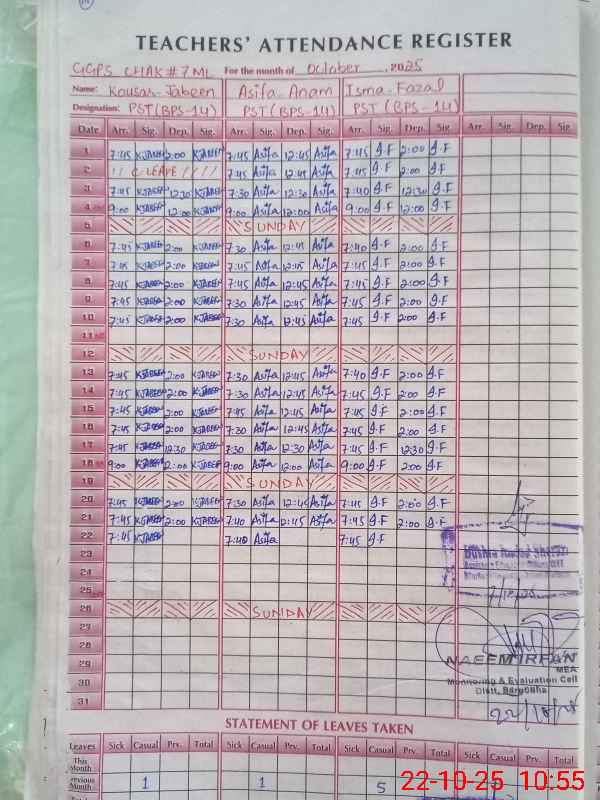 TEACHERS' ATTENDANCE REGISTER
GGPS CHAK#7ML For the month of October, 2025
Name: Kousar Jabeen Asifa Anam Isma Fazal
Designation: PST(BPS-14) PST(BPS-14) PST(BPS-14)
Date Arr. Sig. Dep. Sig. Arr. Sig. Dep. Sig. Arr. Sig. Dep. Sig. Arr. Sig. Arr. Sig.
1 7:45 KJABEEN 2:00 KJABEEN 7:45 Asifa 12:45 Asifa 7:45 I.F 2:00 I.F
2 C LEAVE 7:45 Asifa 12:45 Asifa 7:45 I.F 2:00 I.F
3 7:45 KJABEEN 12:30 KJABEEN 7:30 Asifa 12:30 Asifa 7:40 I.F 12:30 I.F
4 9:00 KJABEEN 12:00 KJABEEN 9:00 Asifa 12:00 Asifa 9:00 I.F 12:00 I.F
5 SUNDAY
6 7:45 KJABEEN 2:00 KJABEEN 7:30 Asifa 12:45 Asifa 7:40 I.F 2:00 I.F
7 7:45 KJABEEN 2:00 KJABEEN 7:45 Asifa 12:45 Asifa 7:45 I.F 2:00 I.F
8 7:45 KJABEEN 2:00 KJABEEN 7:45 Asifa 12:45 Asifa 7:45 I.F 2:00 I.F
9 7:45 KJABEEN 2:00 KJABEEN 7:30 Asifa 12:45 Asifa 7:45 I.F 2:00 I.F
10 7:45 KJABEEN 2:00 KJABEEN 7:30 Asifa 12:45 Asifa 7:45 I.F 2:00 I.F
11
12 SUNDAY
13 7:45 KJABEEN 2:00 KJABEEN 7:30 Asifa 12:45 Asifa 7:40 I.F 2:00 I.F
14 7:45 KJABEEN 2:00 KJABEEN 7:30 Asifa 12:45 Asifa 7:45 I.F 2:00 I.F
15 7:45 KJABEEN 2:00 KJABEEN 7:45 Asifa 12:45 Asifa 7:45 I.F 2:00 I.F
16 7:45 KJABEEN 2:00 KJABEEN 7:30 Asifa 12:45 Asifa 7:45 I.F 2:00 I.F
17 7:45 KJABEEN 12:30 KJABEEN 7:30 Asifa 12:30 Asifa 7:45 I.F 12:30 I.F
18 9:00 KJABEEN 12:00 KJABEEN 9:00 Asifa 12:00 Asifa 9:00 I.F 2:00 I.F
19 SUNDAY
20 7:45 KJABEEN 2:00 KJABEEN 7:30 Asifa 12:45 Asifa 7:45 I.F 2:00 I.F
21 7:45 KJABEEN 2:00 KJABEEN 7:40 Asifa 12:45 Asifa 7:45 I.F 2:00 I.F
22 7:45 KJABEEN 7:40 Asifa 7:45 I.F
23
24
25
26 SUNDAY
27
28
29
30
31
NAEEM IRFAN
MEA
Monitoring & Evaluation Cell
Distt. Bargodha
22/10/25
STATEMENT OF LEAVES TAKEN
Leaves Sick Casual Prv. Total Sick Casual Prv. Total Sick Casual Prv. Total Sick Casual
This Month
Previous Month 1 1 5
22-10-25 10:55